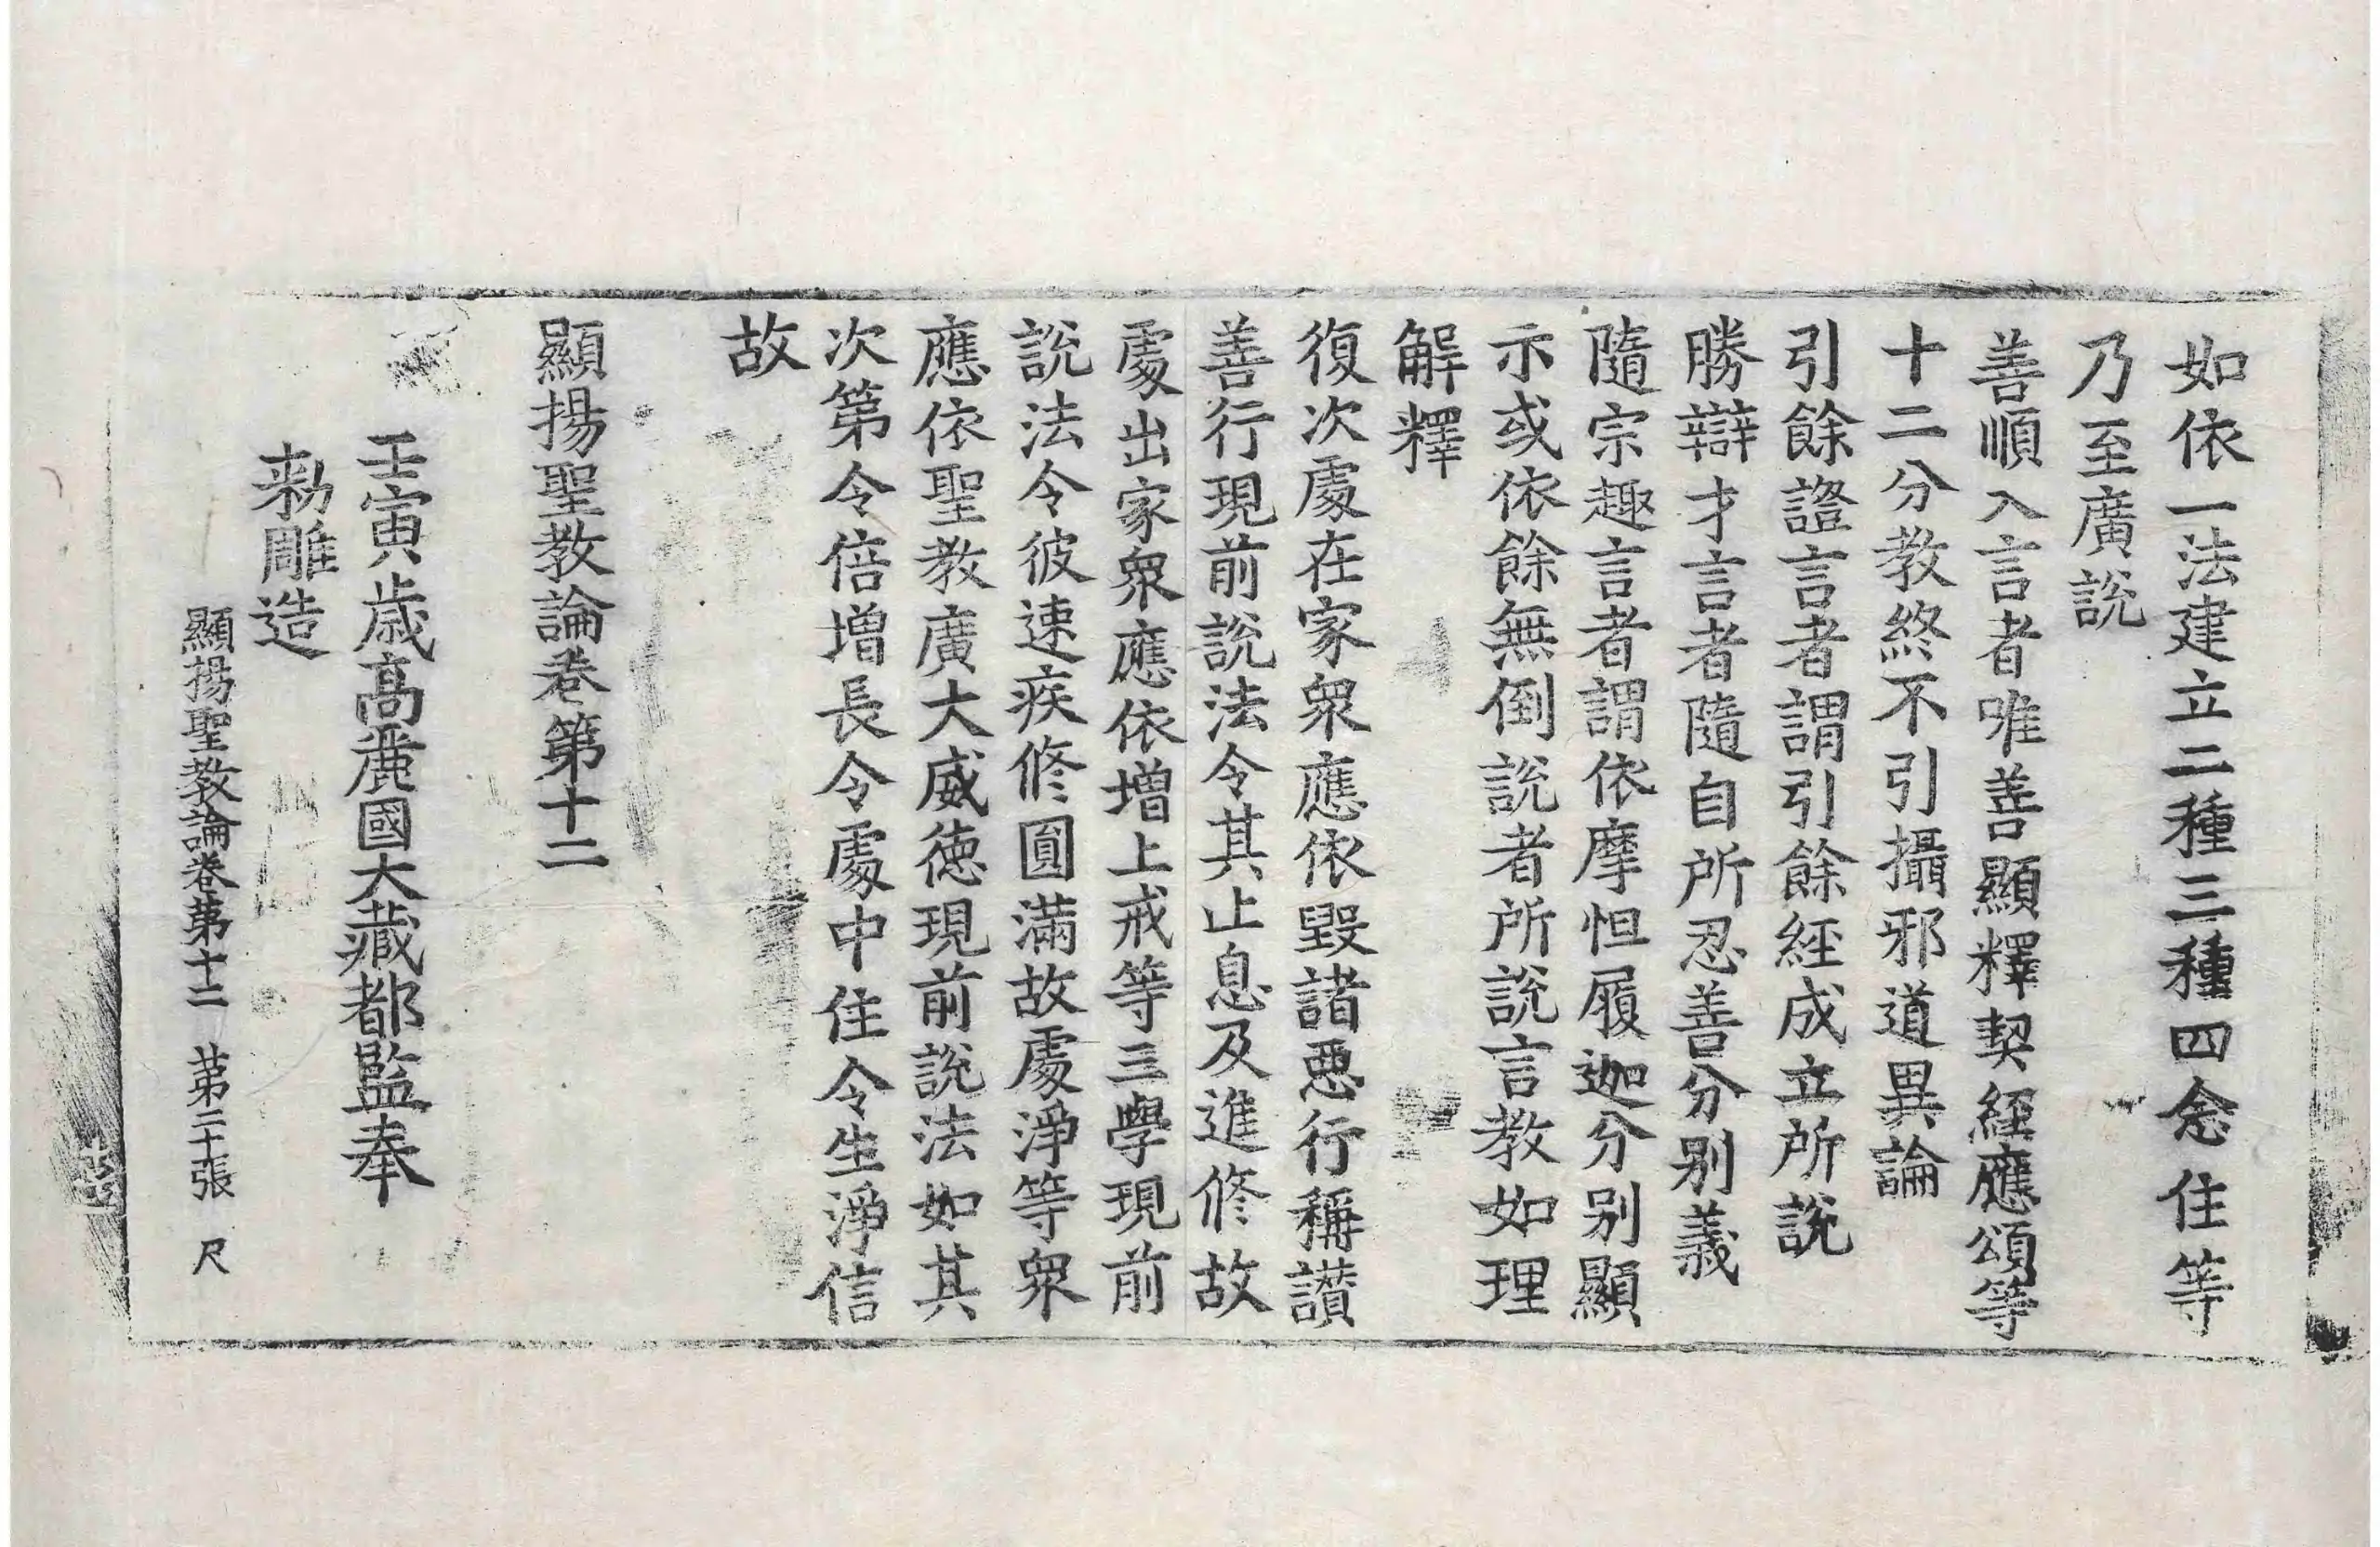 如依一法建立二種三種四念住等
乃至廣說
善順入言者唯善顯釋契經應頌等
十二分教終不引攝邪道異論
引餘證言者謂引餘經成立所說
勝辯才言者隨自所忍善分別義
隨宗趣言者謂依摩怛履迦分別顯
示或依餘無倒說者所說言教如理
解釋
復次處在家衆應依毀諸惡行稱讃
善行現前說法令其止息及進修故
處出家衆應依增上戒等三學現前
說法令彼速疾修圓滿故處淨等衆
應依聖教廣大威德現前說法如其
次第令倍增長令處中住令生淨信
故
顯揚聖教論卷第十二
壬寅歲高麗國大藏都監奉
勑雕造
顯揚聖教論卷第十二 第二十張 尺